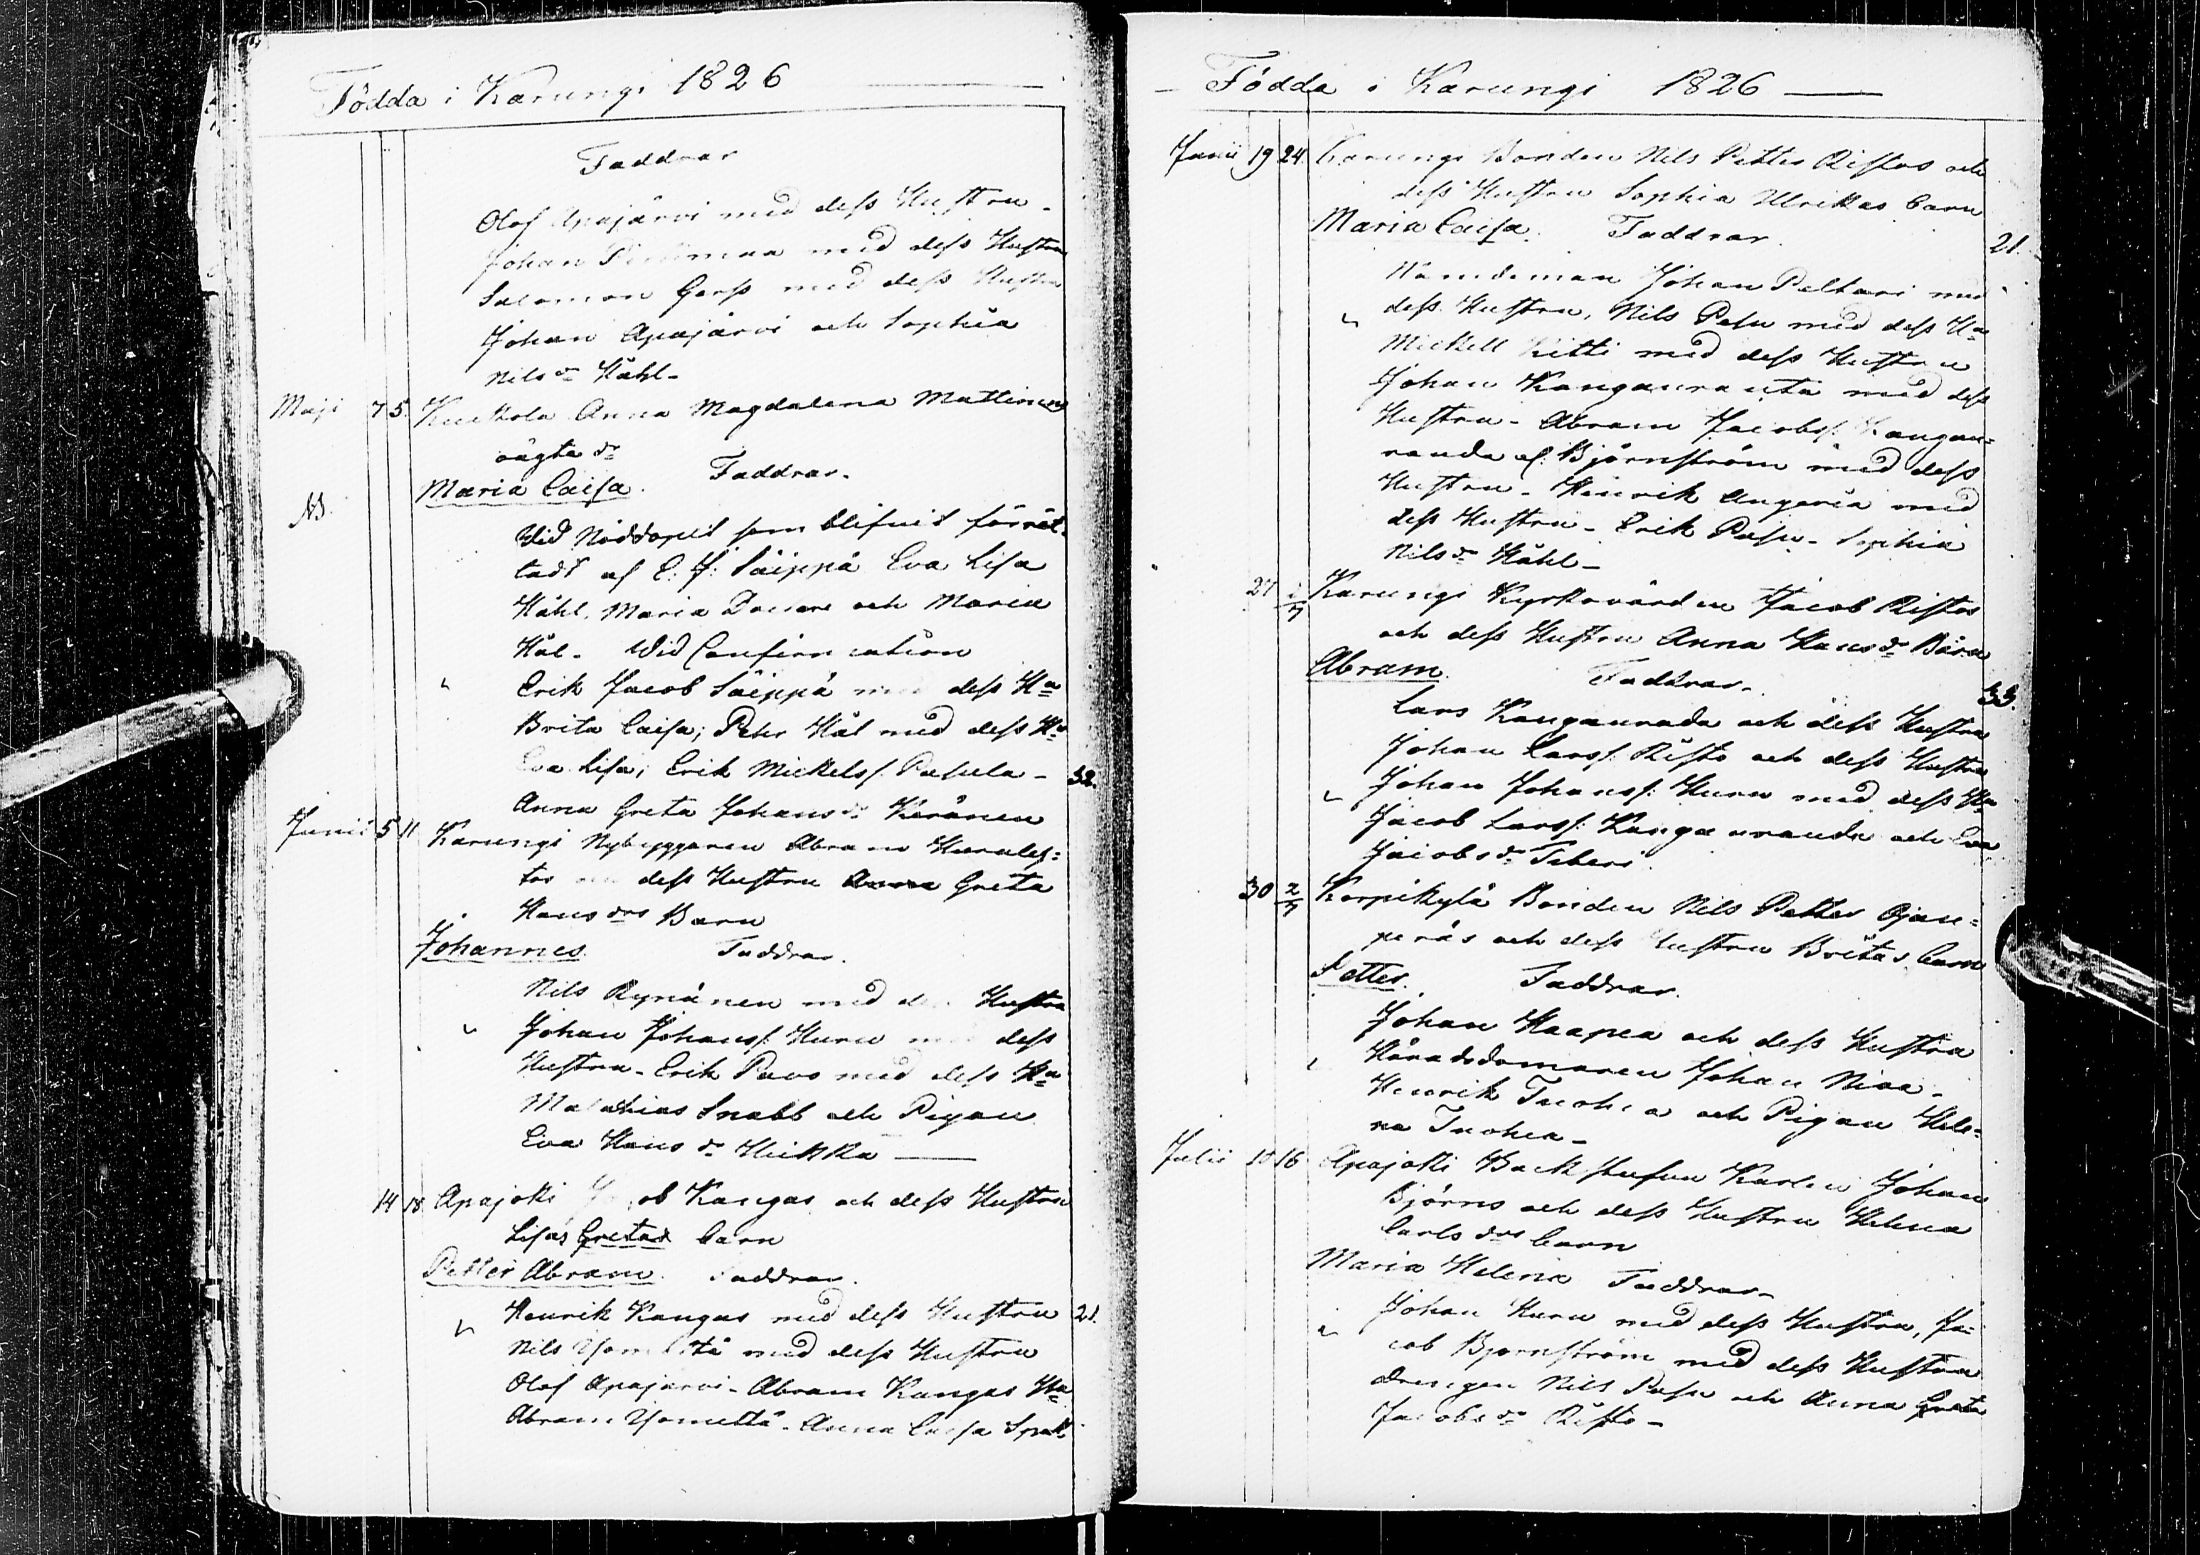 Födda i Karungi 1826
Faddrar
Olof Apajärvi med dess Hustru -
Johan med dess Hustru
Salomon med dess Hustru
Johan Apajärvi och Sophia
Nils dr Håhl -
Maji 7 5. Kuckola Anna Magdalena Mattinens
oägta dr
Maria Caisa. Faddrar.
NB.
Wid Nöddopet som blifvit förrät-
tadt af E: J: Säippä Eva Lisa
Håhl, Maria och Maria
Hål. Wid Confirmation
Erik Jacob Säippä med dess Ha
Brita Caisa; Petter Hål med dess Ha
Eva Lisa; Erik Mickelss: - 32.
Anna Greta Johans dr Keränen
Junii 5 11 Karungi Nybyggaren Abram
dess Hustru Anna Greta
Hans drs Barn
Johannes. Faddrar.
Nils Rynänen med Hustru
Johan Johanss: Huru dess
Hustru - Erik Paavo med dess Ha
Mathias Snabb och Pigan
Eva Hans dr Heikka
14 18. Apajoki Kangas och dess Hustru
Lisas Gretas barn
Petter Abram. Faddrar.
Henrik Kangas med dess Hustru 21.
Nils med dess Hustru
Olof Apajarvi - Abram Kangas Ha
Abram - Anna Caisa
Födda i Karungi 1826
Junii 19 24. Karungi Bonden Nils Petter Ristos och
dess Hustru Sophia Ulrikas barn
Maria Caisa. Faddrar. 21.
Nämdeman Johan Peltari med
dess Hustru, Nils Pasu med dess Ha
Mickell Kitti med dess Hustru
Johan Kanganranta med dess
Hustru - Abram Jacobss: Kangan-
randa Björnström med dess
Hustru - Henrik Angeria med
dess Hustru - Erik Pasu - Sophia
Nils dr Håhl -
27 2/7 Karungi Kyrkovärden Jacob Ristos
och dess Hustru Anna Hans dr Barn
Abram. Faddrar. 33.
Lars Kanganrada och dess Hustru
Johan Larss: Risto och dess Hustru
Johan Johanss: Huru med dess Ha
Jacob Larss: Kanganranda och Eva
Jacobs dr
30 2/7 Korpikylä Bonden Nils Petter Ojan-
peräs och dess Hustru Britas barn
Petter. Faddrar.
Johan Haapea och dess Hustru
Häradsdomaren Johan Niva -
Henrik Tuohea och Pigan Hele-
na Tuohea -
Julii 15 16 Apajoki Backstufvu Karlen Johan
Björns och dess Hustru Helena
Carls drs barn
Maria Helena Faddrar -
Johan Huru med dess Hustru, Ja-
cob Bjornström med dess Hustru
drengen Nils Pasu och Anna Greta
Jacobs dr Risto -